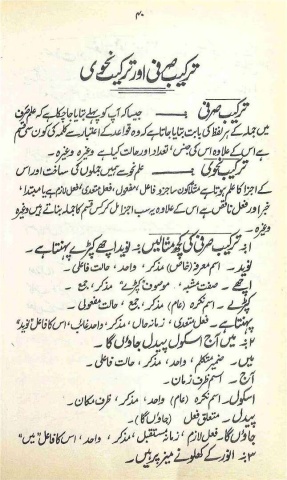 ۴۰
ترکیب صرفی اور ترکیب نحوی
ترکیب صرفی :۔ جیسا کہ آپ کو پہلے بتایا جا چکا ہے کہ علم صرف
میں جملہ کے ہر لفظ کی بابت بتایا جاتا ہے کہ وہ قواعد کے اعتبار سے کلمہ کی کون سی قسم
ہے اس کے علاوہ اس کی جنس، تعداد اور حالت کیا ہے وغیرہ وغیرہ۔
ترکیب نحوی :۔ علم نحو سے ہمیں جملوں کی ساخت اور اس
کے اجزا کا علم ہوتا ہے مثلاً کون سا جزو فاعل، مفعول، فعل متعدی، فعل لازم ہے یا مبتدا،
خبر اور فعل ناقص ہے اس کے علاوہ یہ سب اجزا مل کر کس قسم کا جملہ بناتے ہیں وغیرہ
وغیرہ۔
ترکیب صرفی کی کچھ مثالیں
۱:۔ نوید اچھے کپڑے پہنتا ہے۔
نوید۔ اسم معرفہ (خاص)، مذکر، واحد، حالت فاعلی۔
اچھے۔ صفت مشبہ، موصوف کپڑے، مذکر، جمع
کپڑے۔ اسم نکرہ (عام)، مذکر، جمع، حالت مفعولی۔
پہنتا ہے۔ فعل متعدی، زمانہ حال، مذکر، واحد غائب، اس کا فاعل "نوید"
۲:۔ میں آج اسکول پیدل جاؤں گا۔
میں۔ ضمیر متکلم، واحد، مذکر، حالت فاعلی۔
آج۔ اسم ظرف زمان۔
اسکول۔ اسم نکرہ (عام)، مذکر، واحد، ظرف مکان۔
پیدل۔ متعلق فعل (جاؤں گا)۔
جاؤں گا۔ فعل لازم، زمانہ مستقبل، مذکر، واحد، اس کا فاعل "میں"
۳:۔ انور کے کھلونے میز پر ہیں۔